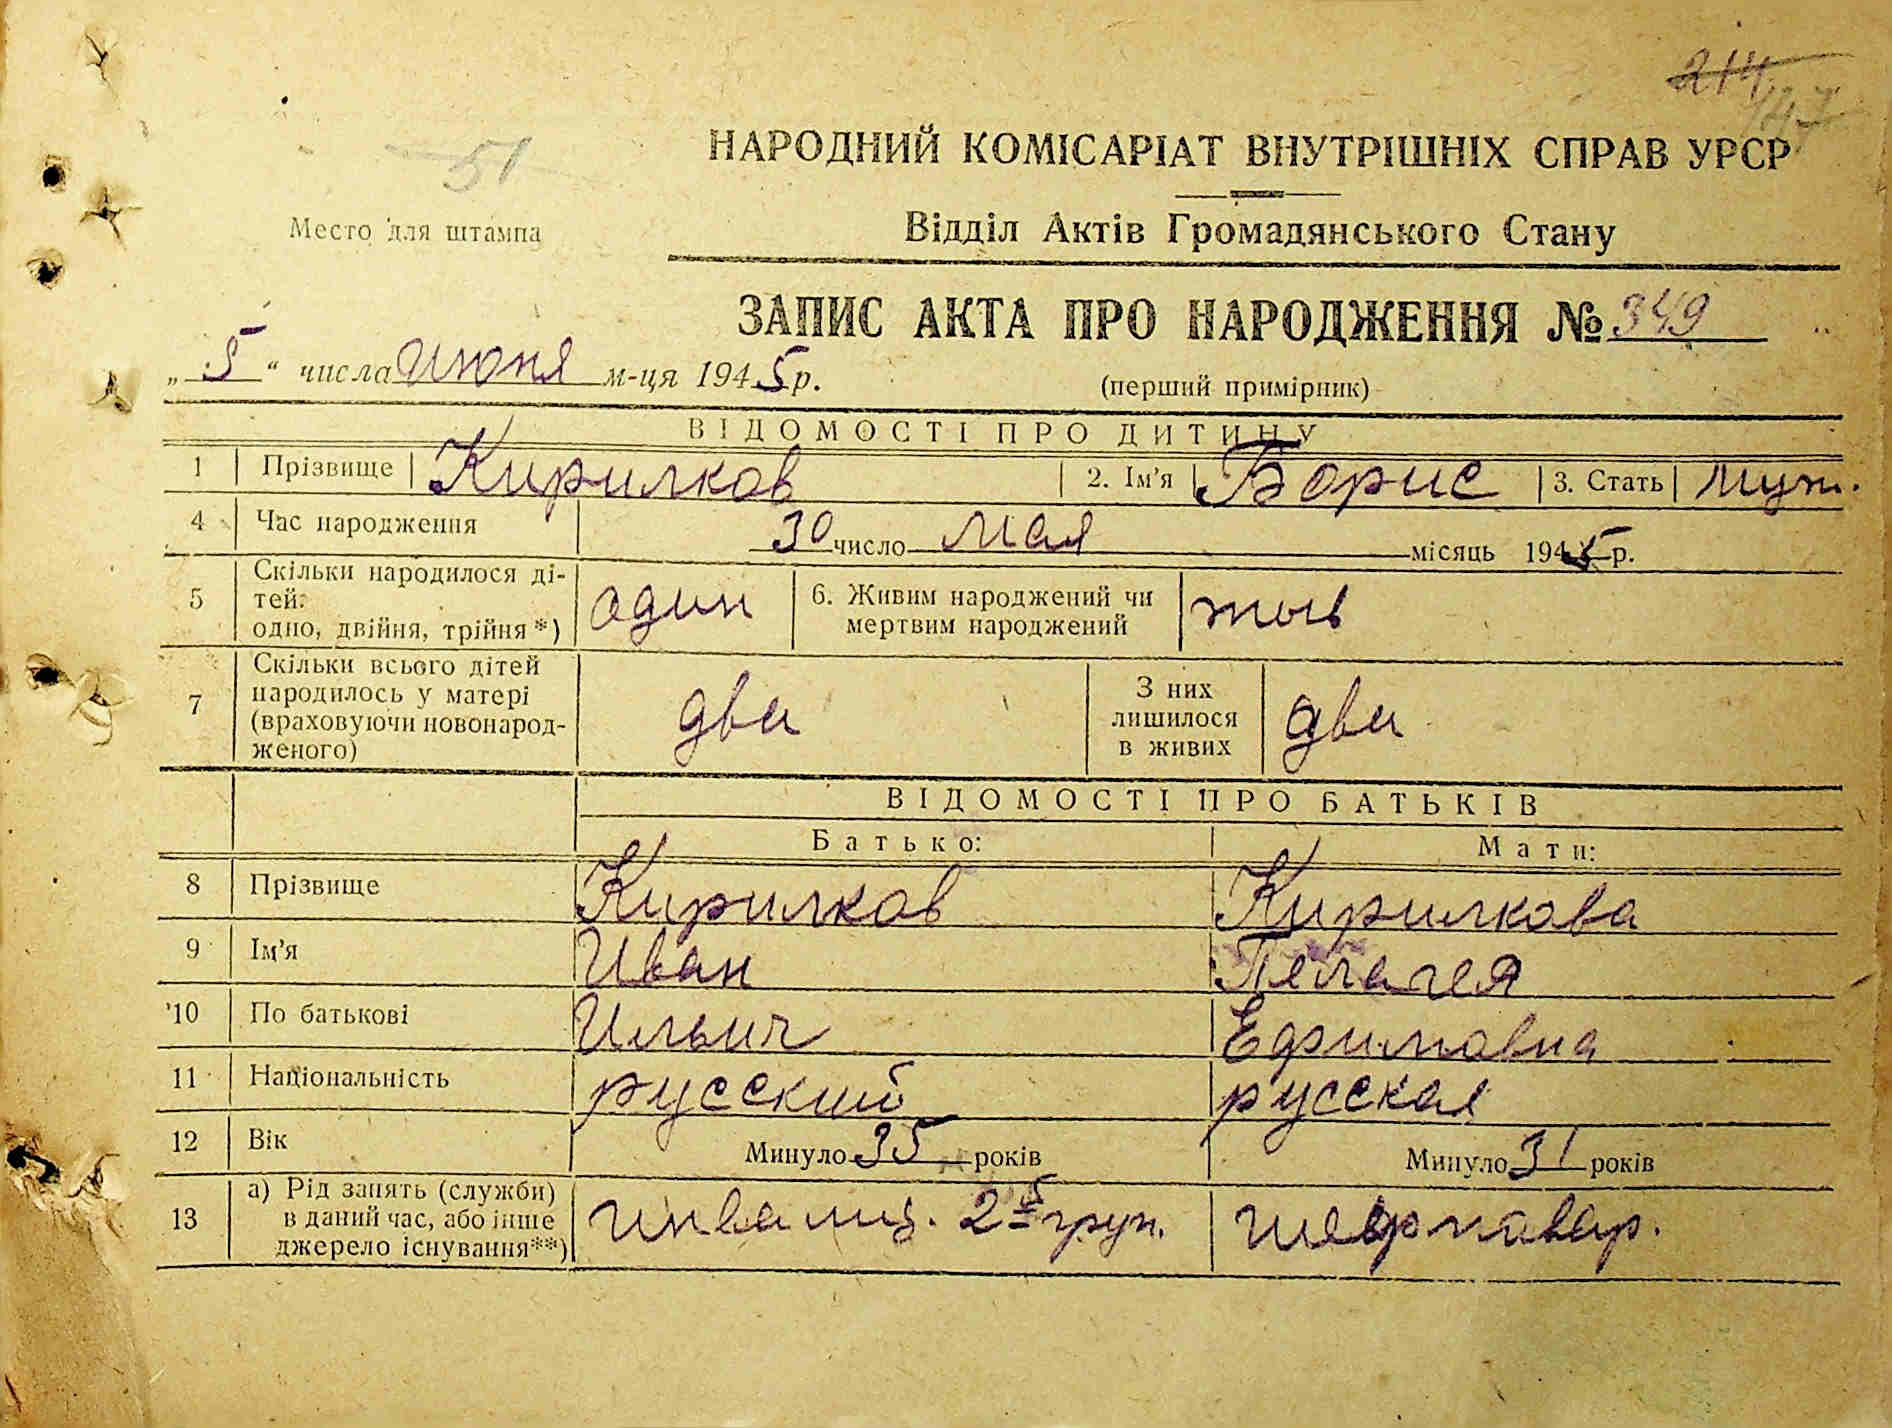 214
147
51
НАРОДНИЙ КОМІСАРІАТ ВНУТРІШНІХ СПРАВ УРСР
Место для штампа
Відділ Актів Громадянського Стану
ЗАПИС АКТА ПРО НАРОДЖЕННЯ № 349
„5“ числа июня м-ця 1945 р.
(перший примірник)
ВІДОМОСТІ ПРО ДИТИНУ
1 Прізвище Кирилков 2. Ім'я Борис 3. Стать муж.
4 Час народження 30 число мая місяць 1945 р.
5 Скільки народилося ді-
тей:
одно, двійня, трійня*) один
6. Живим народжений чи
мертвим народжений жив
7 Скільки всього дітей
народилось у матері
(враховуючи новонарод-
женого) два
З них
лишилося
в живих два
ВІДОМОСТІ ПРО БАТЬКІВ
Батько: Мати:
8 Прізвище Кирилков Кирилкова
9 Ім'я Иван Пелагея
10 По батькові Ильич Ефимовна
11 Національність русский русская
12 Вік Минуло 35 років Минуло 31 років
13 а) Рід занять (служби)
в даний час, або інше
джерело існування**) инвалид. 2й груп. шеф повар.